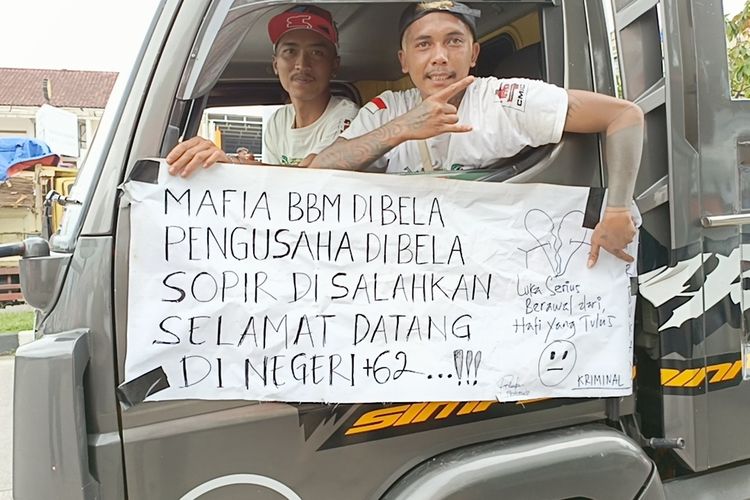 MAFIA BBM DI BELA
PENGUSAHA DI BELA
SOPIR DI SALAHKAN
SELAMAT DATANG
DI NEGERI +62 ...!!!
Luka Serius
Berawal dari,
Hati Yang Tulus
KRIMINAL
CMC